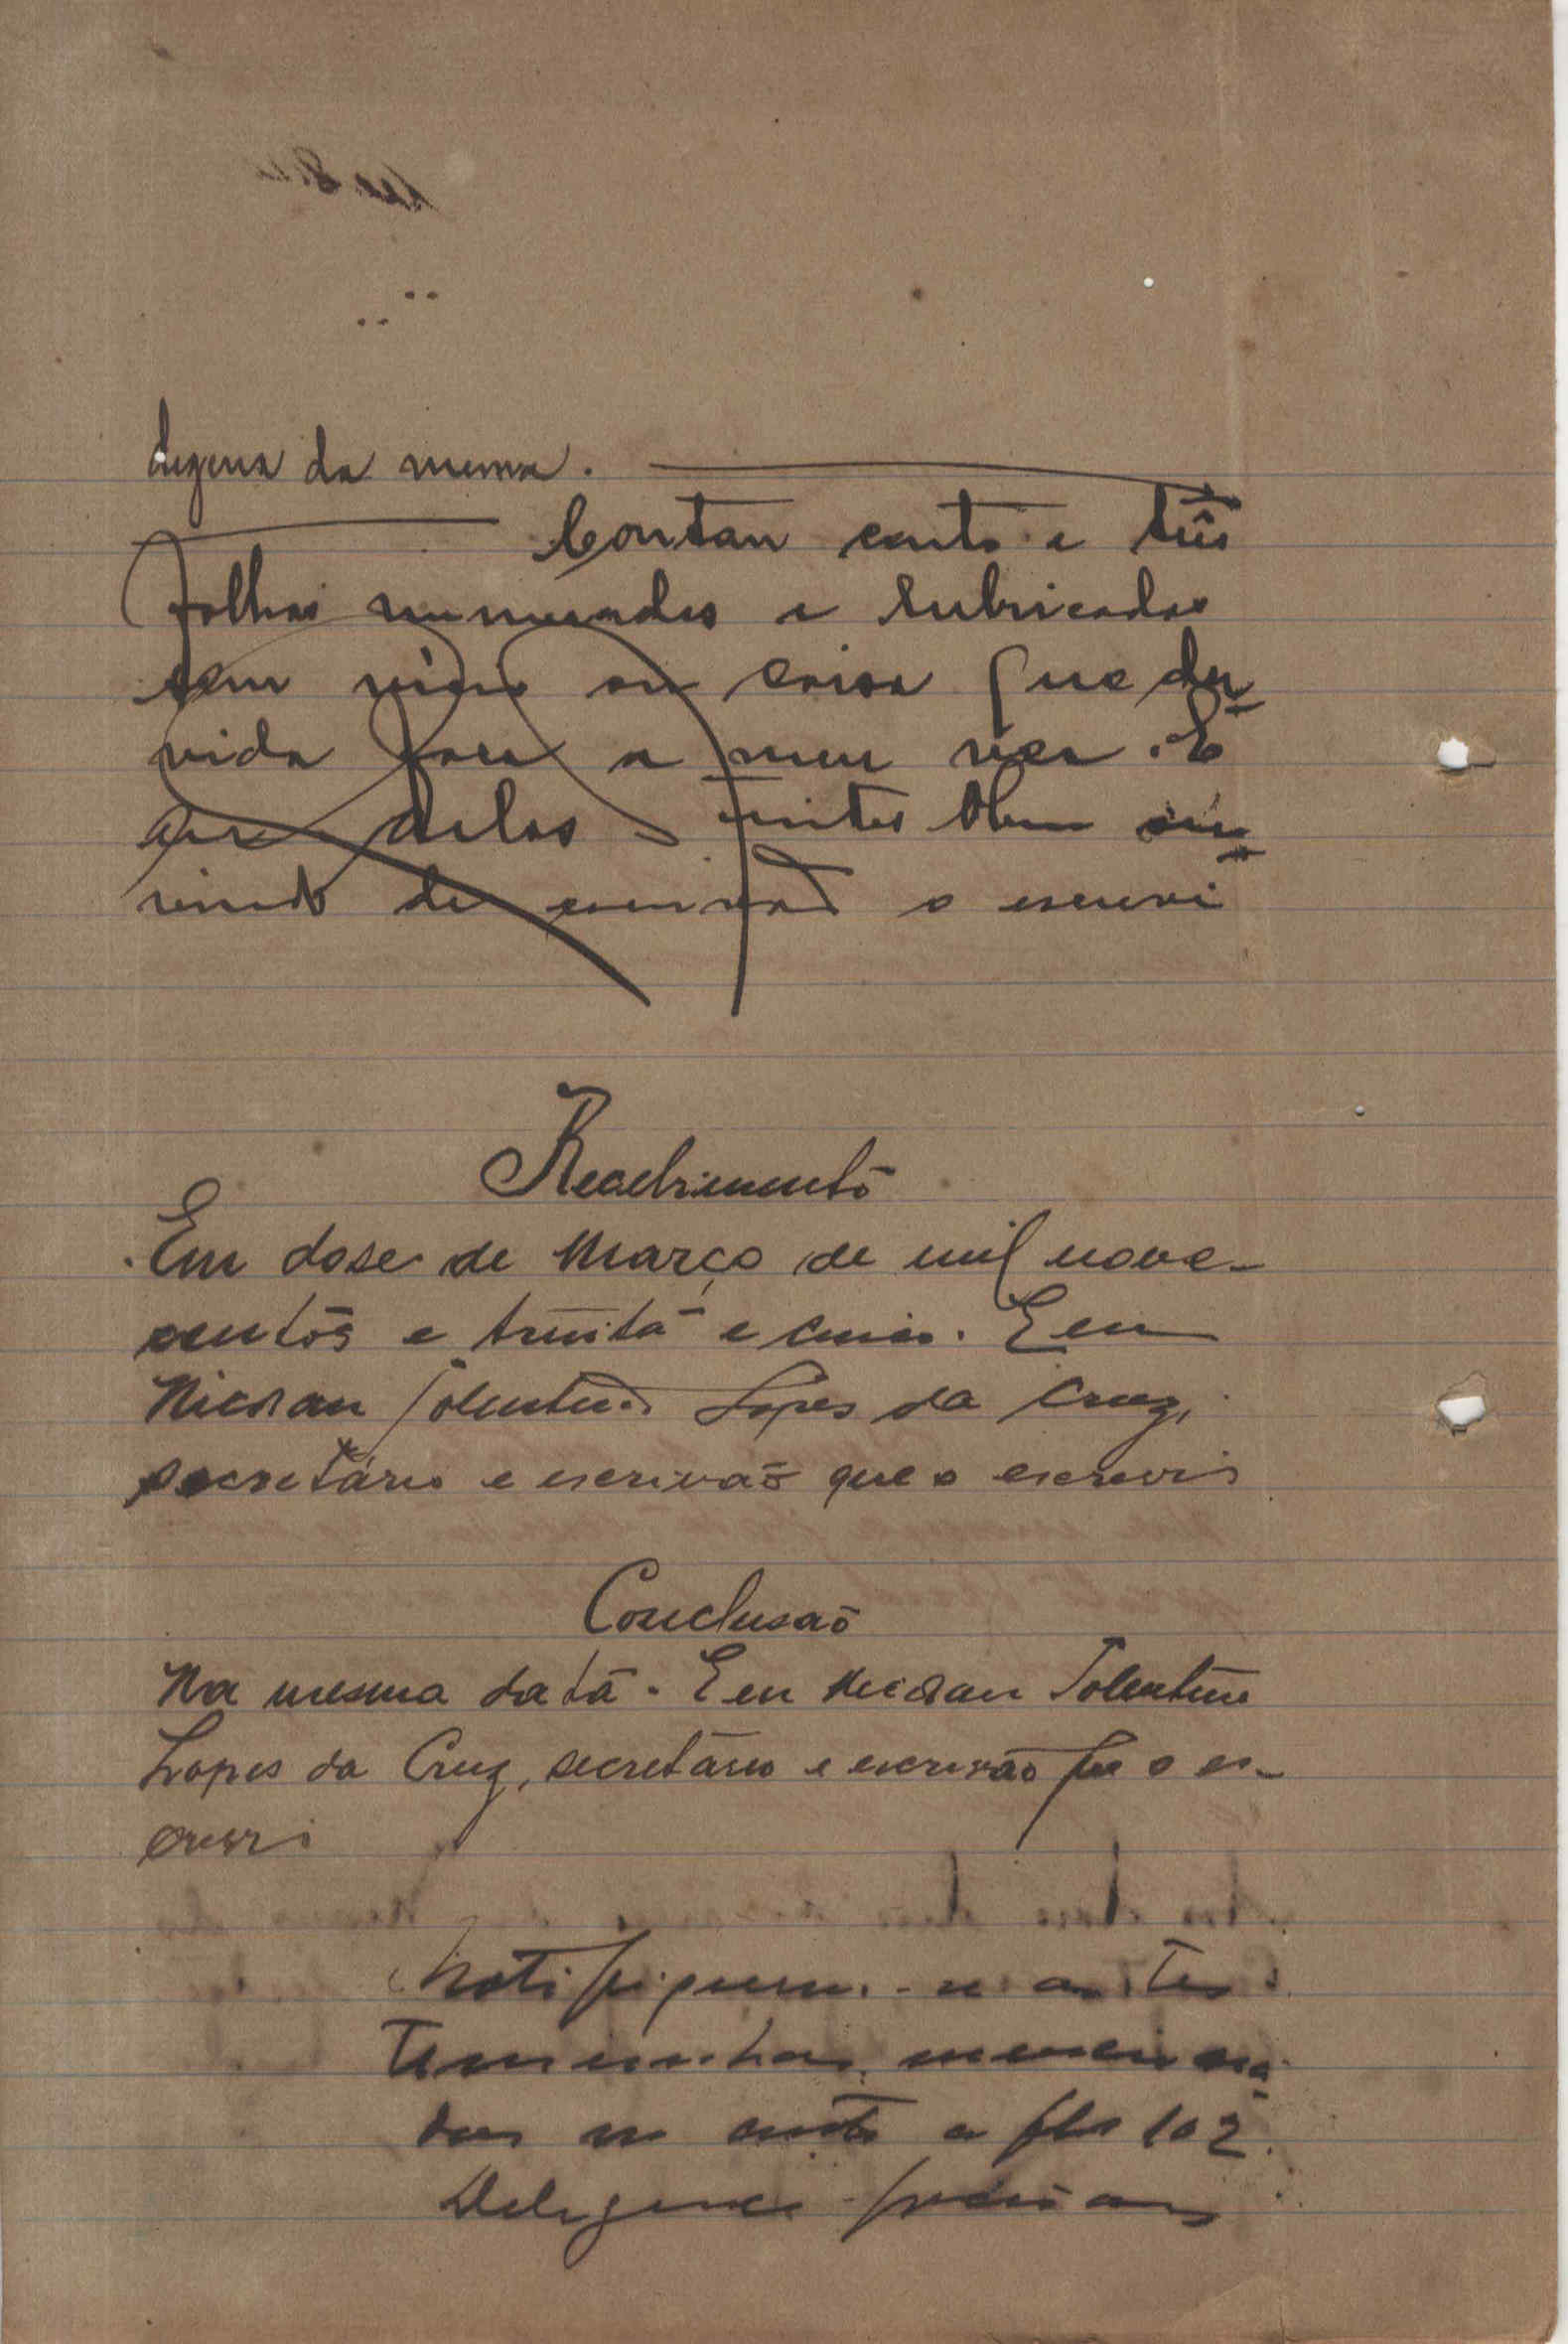 da mesma.
Contam cento e três
folhas numeradas e rubricadas
sem vicio ou coisa que du-
vida faça a meu ver. E
que delas
de escrivão o escrevi
Recebimento
Em dose de Março de mil nove-
centos e trinta e cinco. E eu
Nicolau Tolentino Lopes da Cruz,
secretário e escrivão que o escrevi
Conclusão
Na mesma data. E eu Nicolau Tolentino
Lopes da Cruz, secretário e escrivão que o es-
crevi
Notifiquem-se as tes-
temunhas menciona-
das no auto a fls 102.